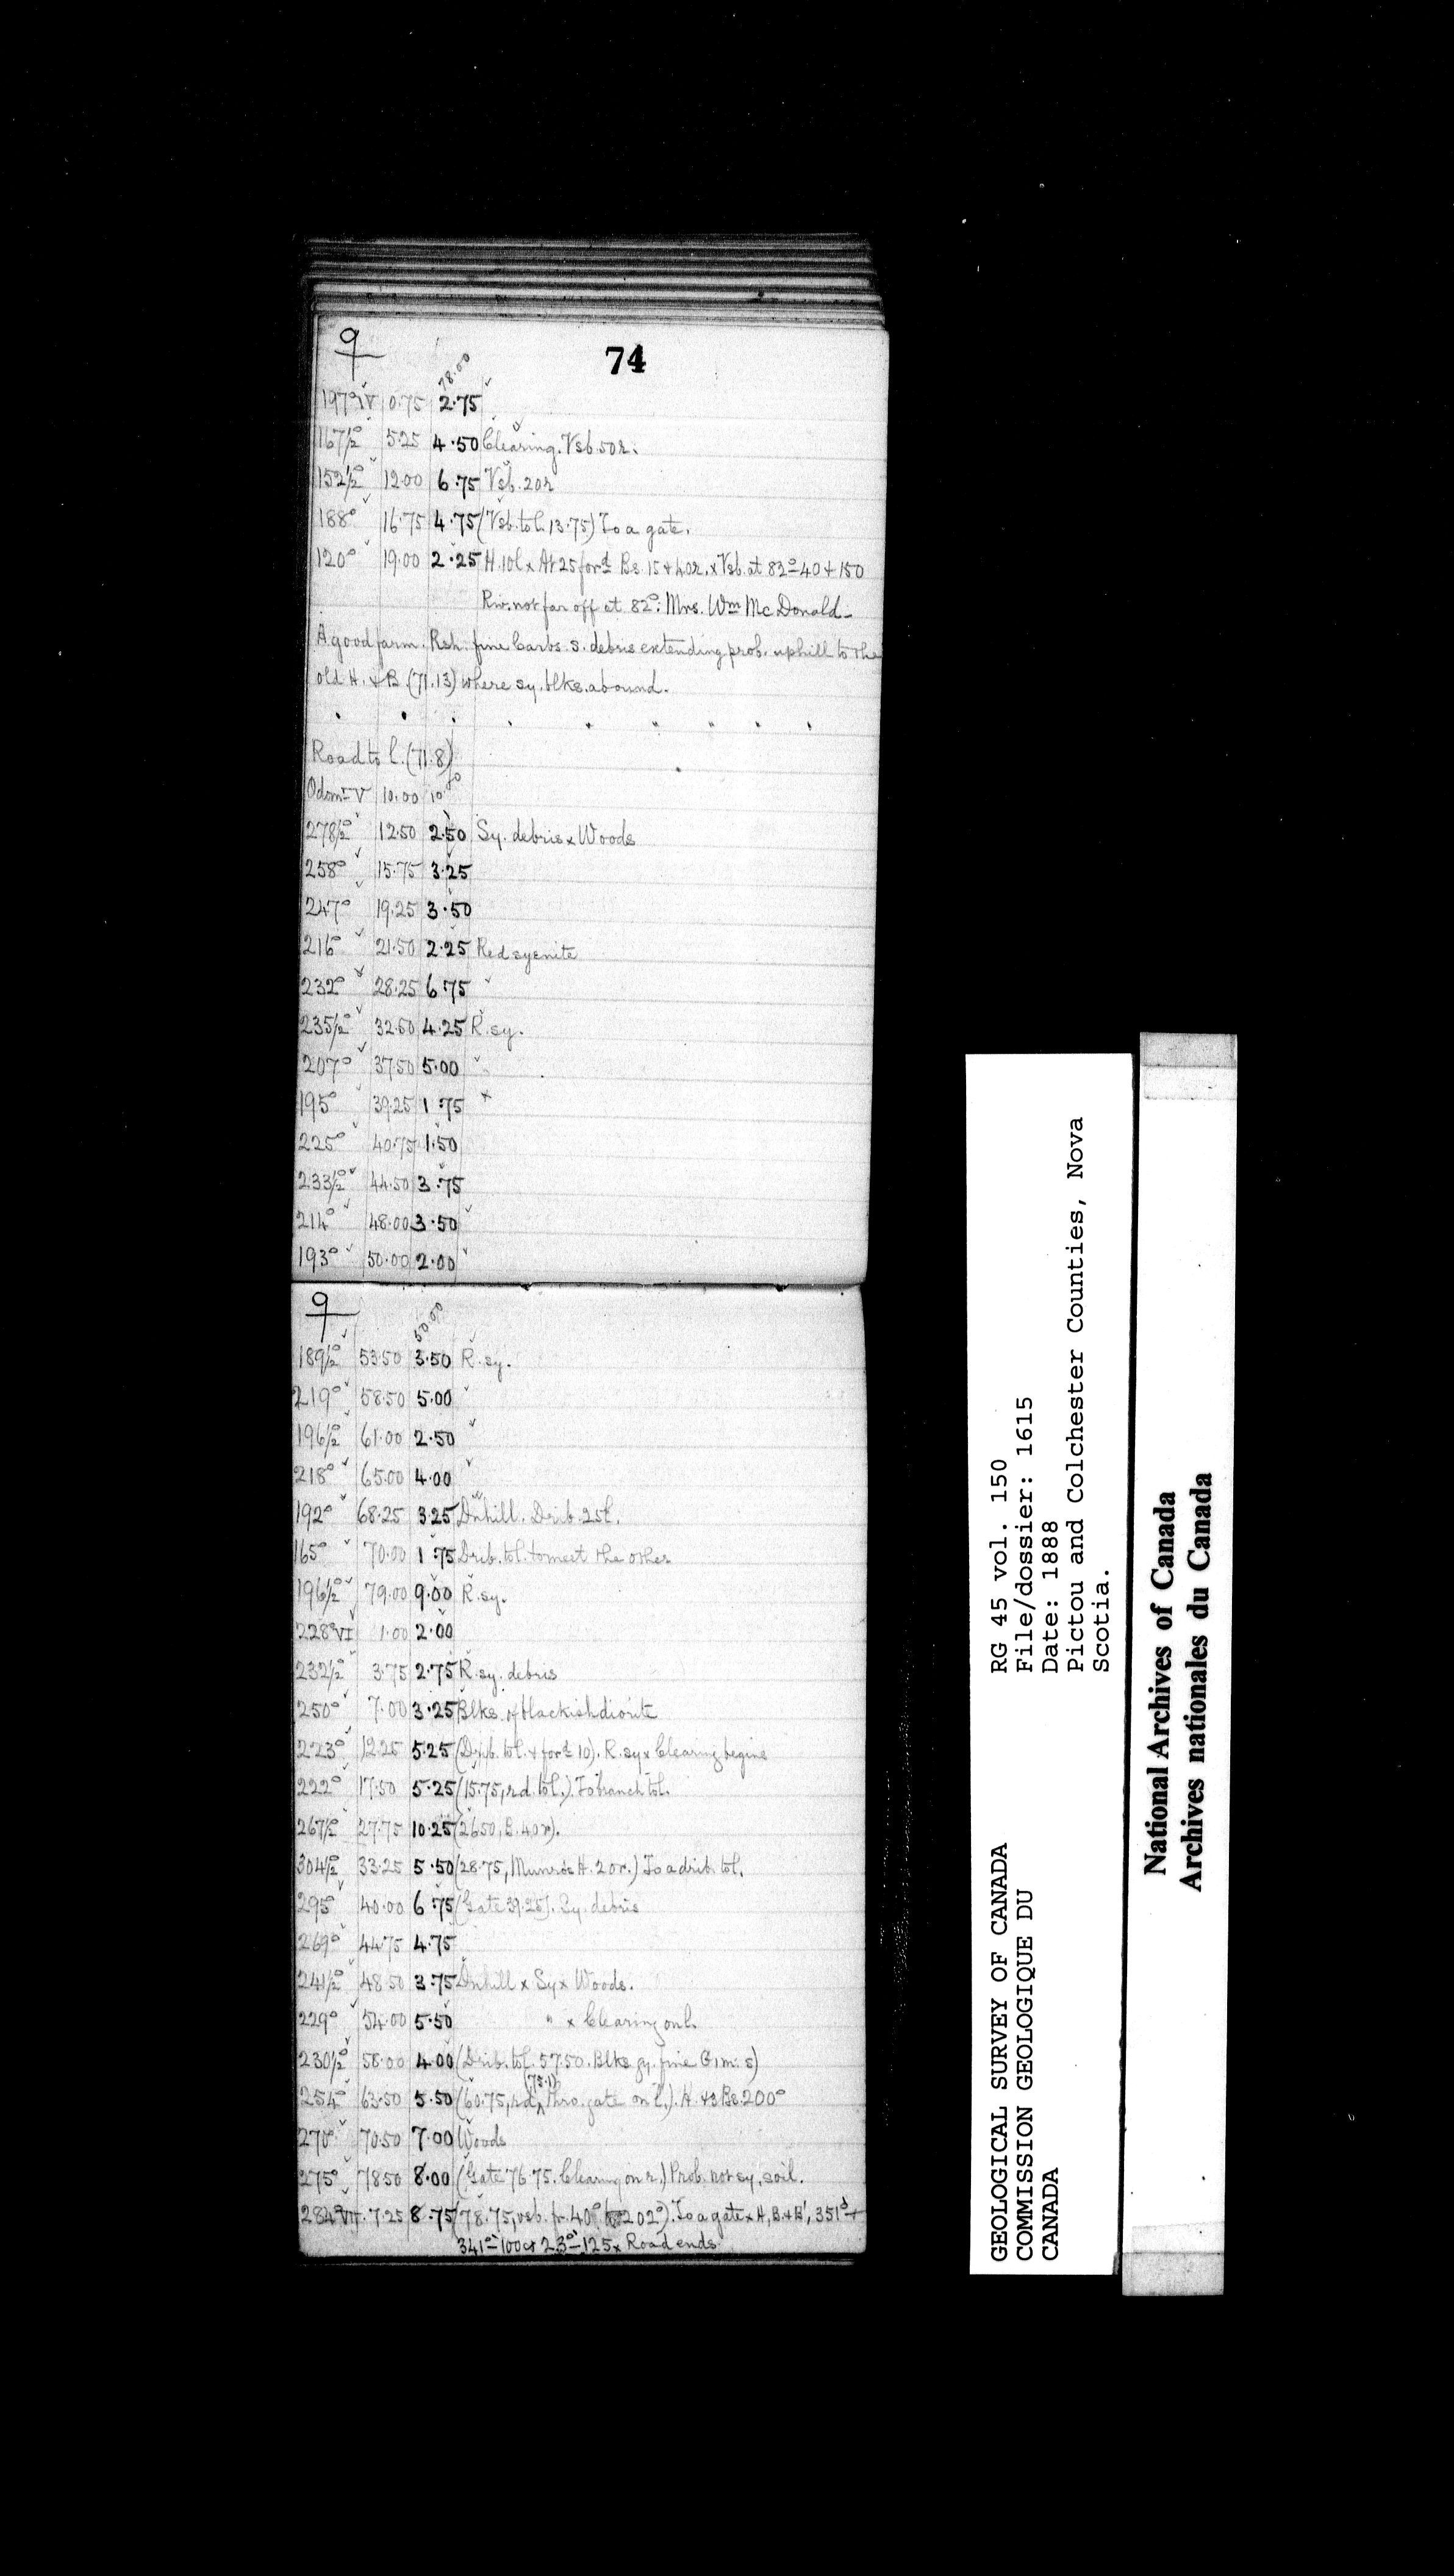 9
74
78.00
197° IV 0.75 2.75
167½° 5.25 4.50 Clearing. Vsb. 50r.
152½° 12.00 6.75 Vsb. 20r
188° 16.75 4.75 (Vsb. to l. 13.75) To a gate.
120° 19.00 2.25 H. 10l x At 25 ford Bs. 15 + 40r. x Vsb. at 82° – 40 + 150
Riv. not far off at 82°: Mrs. Wm McDonald –
A good farm. Rsh. fine Carbs. s. debris extending prob. uphill to the
old H. & B (71.13) where sy. blks. abound.
Road to l. (71.8)
Odom. V 10.00 10.00
278½° 12.50 2.50 Sy. debris x Woods
258° 15.75 3.25
247° 19.25 3.50
216° 21.50 2.25 Red syenite
232° 28.25 6.75 "
235½° 32.50 4.25 R. sy.
207° 37.50 5.00 "
195° 39.25 1.75 "
225° 40.75 1.50
233½° 44.50 3.75
214° 48.00 3.50
193° 50.00 2.00
9
50.00
189½° 53.50 3.50 R. sy.
219° 58.50 5.00 "
196½° 61.00 2.50 "
218° 65.00 4.00 "
192° 68.25 3.25 Dnhill. Drib. 25l.
165° 70.00 1.75 Drib. to l. to meet the other
196½° 79.00 9.00 R. sy.
228° VI 1.00 2.00
232½° 3.75 2.75 R. sy. debris
250° 7.00 3.25 Blks. of blackish diorite
223° 12.25 5.25 (Drib. to l. & ford 10). R. sy x Clearing begins
222° 17.50 5.25 (15.75, rd. to l.) To branch to l.
267½° 27.75 10.25 (26.50, B. 40r).
304½° 33.25 5.50 (28.75, Munro's H. 20r.) To a drib. to l.
295° 40.00 6.75 (Gate 39.25). Sy. debris
269° 44.75 4.75
241½° 48.50 3.75 Dnhill x Sy x Woods.
229° 54.00 5.50 " x Clearing on l.
230½° 58.00 4.00 (Drib. to l. 57.50. Blks gy. fine s)
(75.1)
254° 63.50 5.50 (60.75, rd. thro. gate on l.). H. & 3 Bs. 200°
270° 70.50 7.00 Woods
275° 78.50 8.00 (Gate 76.75. Clearing on r.) Prob. not sy. soil.
284° VII 7.25 8.75 (78.75, vsb. fr. 40° to 202°). To a gate x H, B. + B', 351° +
341° – 100 & 23° – 125 x Road ends
GEOLOGICAL SURVEY OF CANADA
COMMISSION GEOLOGIQUE DU
CANADA
RG 45 vol. 150
File/dossier: 1615
Date: 1888
Pictou and Colchester Counties, Nova
Scotia.
National Archives of Canada
Archives nationales du Canada